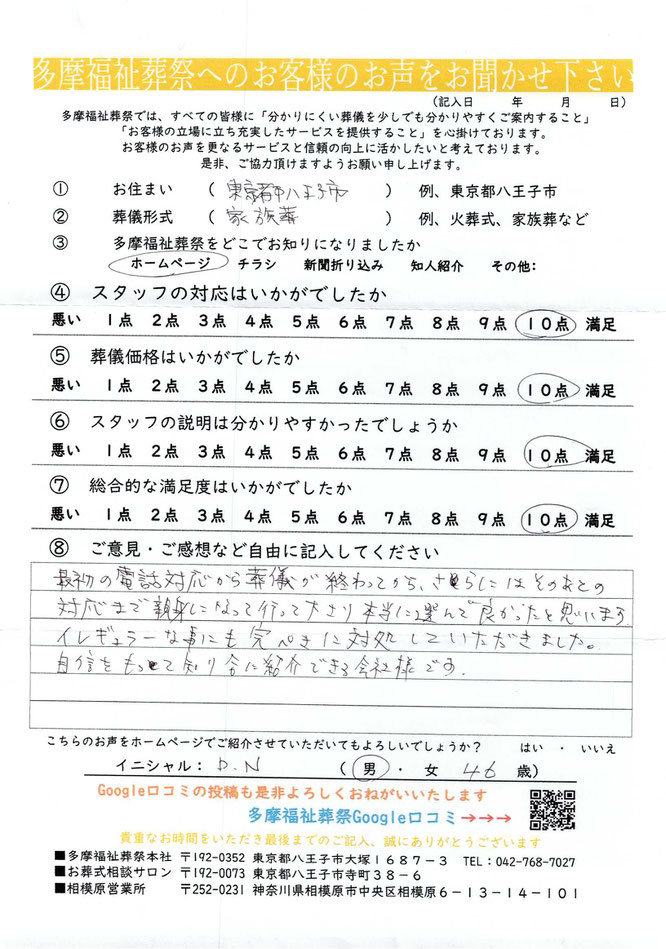 多摩福祉葬祭へのお客様のお声をお聞かせ下さい
（記入日　　年　　月　　日）
多摩福祉葬祭では、すべての皆様に「分かりにくい葬儀を少しでも分かりやすくご案内すること」
「お客様の立場に立ち充実したサービスを提供すること」を心掛けております。
お客様のお声を更なるサービスと信頼の向上に活かしたいと考えております。
是非、ご協力頂けますようお願い申し上げます。
① お住まい （ 東京都八王子市 ） 例、東京都八王子市
② 葬儀形式 （ 家族葬 ） 例、火葬式、家族葬など
③ 多摩福祉葬祭をどこでお知りになりましたか
ホームページ チラシ 新聞折り込み 知人紹介 その他：
④ スタッフの対応はいかがでしたか
悪い １点 ２点 ３点 ４点 ５点 ６点 ７点 ８点 ９点 １０点 満足
⑤ 葬儀価格はいかがでしたか
悪い １点 ２点 ３点 ４点 ５点 ６点 ７点 ８点 ９点 １０点 満足
⑥ スタッフの説明は分かりやすかったでしょうか
悪い １点 ２点 ３点 ４点 ５点 ６点 ７点 ８点 ９点 １０点 満足
⑦ 総合的な満足度はいかがでしたか
悪い １点 ２点 ３点 ４点 ５点 ６点 ７点 ８点 ９点 １０点 満足
⑧ ご意見・ご感想など自由に記入してください
最初の電話対応から葬儀が終わってから、さらにはそのあとの
対応まで親身になって行って下さり本当に選んで良かったと思います
イレギュラーな事にも完ぺきに対処していただきました。
自信をもって知り合に紹介できる会社様です.
こちらのお声をホームページでご紹介させていただいてもよろしいでしょうか？ はい ・ いいえ
イニシャル： D.N （ 男 ・ 女 46 歳）
Google口コミの投稿も是非よろしくおねがいいたします
多摩福祉葬祭Google口コミ→→→
貴重なお時間をいただき最後までのご記入、誠にありがとうございます
■多摩福祉葬祭本社 〒192-0352 東京都八王子市大塚１６８７－３ TEL：042-768-7027
■お葬式相談サロン 〒192-0073 東京都八王子市寺町３８－６
■相模原営業所 〒252-0231 神奈川県相模原市中央区相模原６－１３－１４－１０１